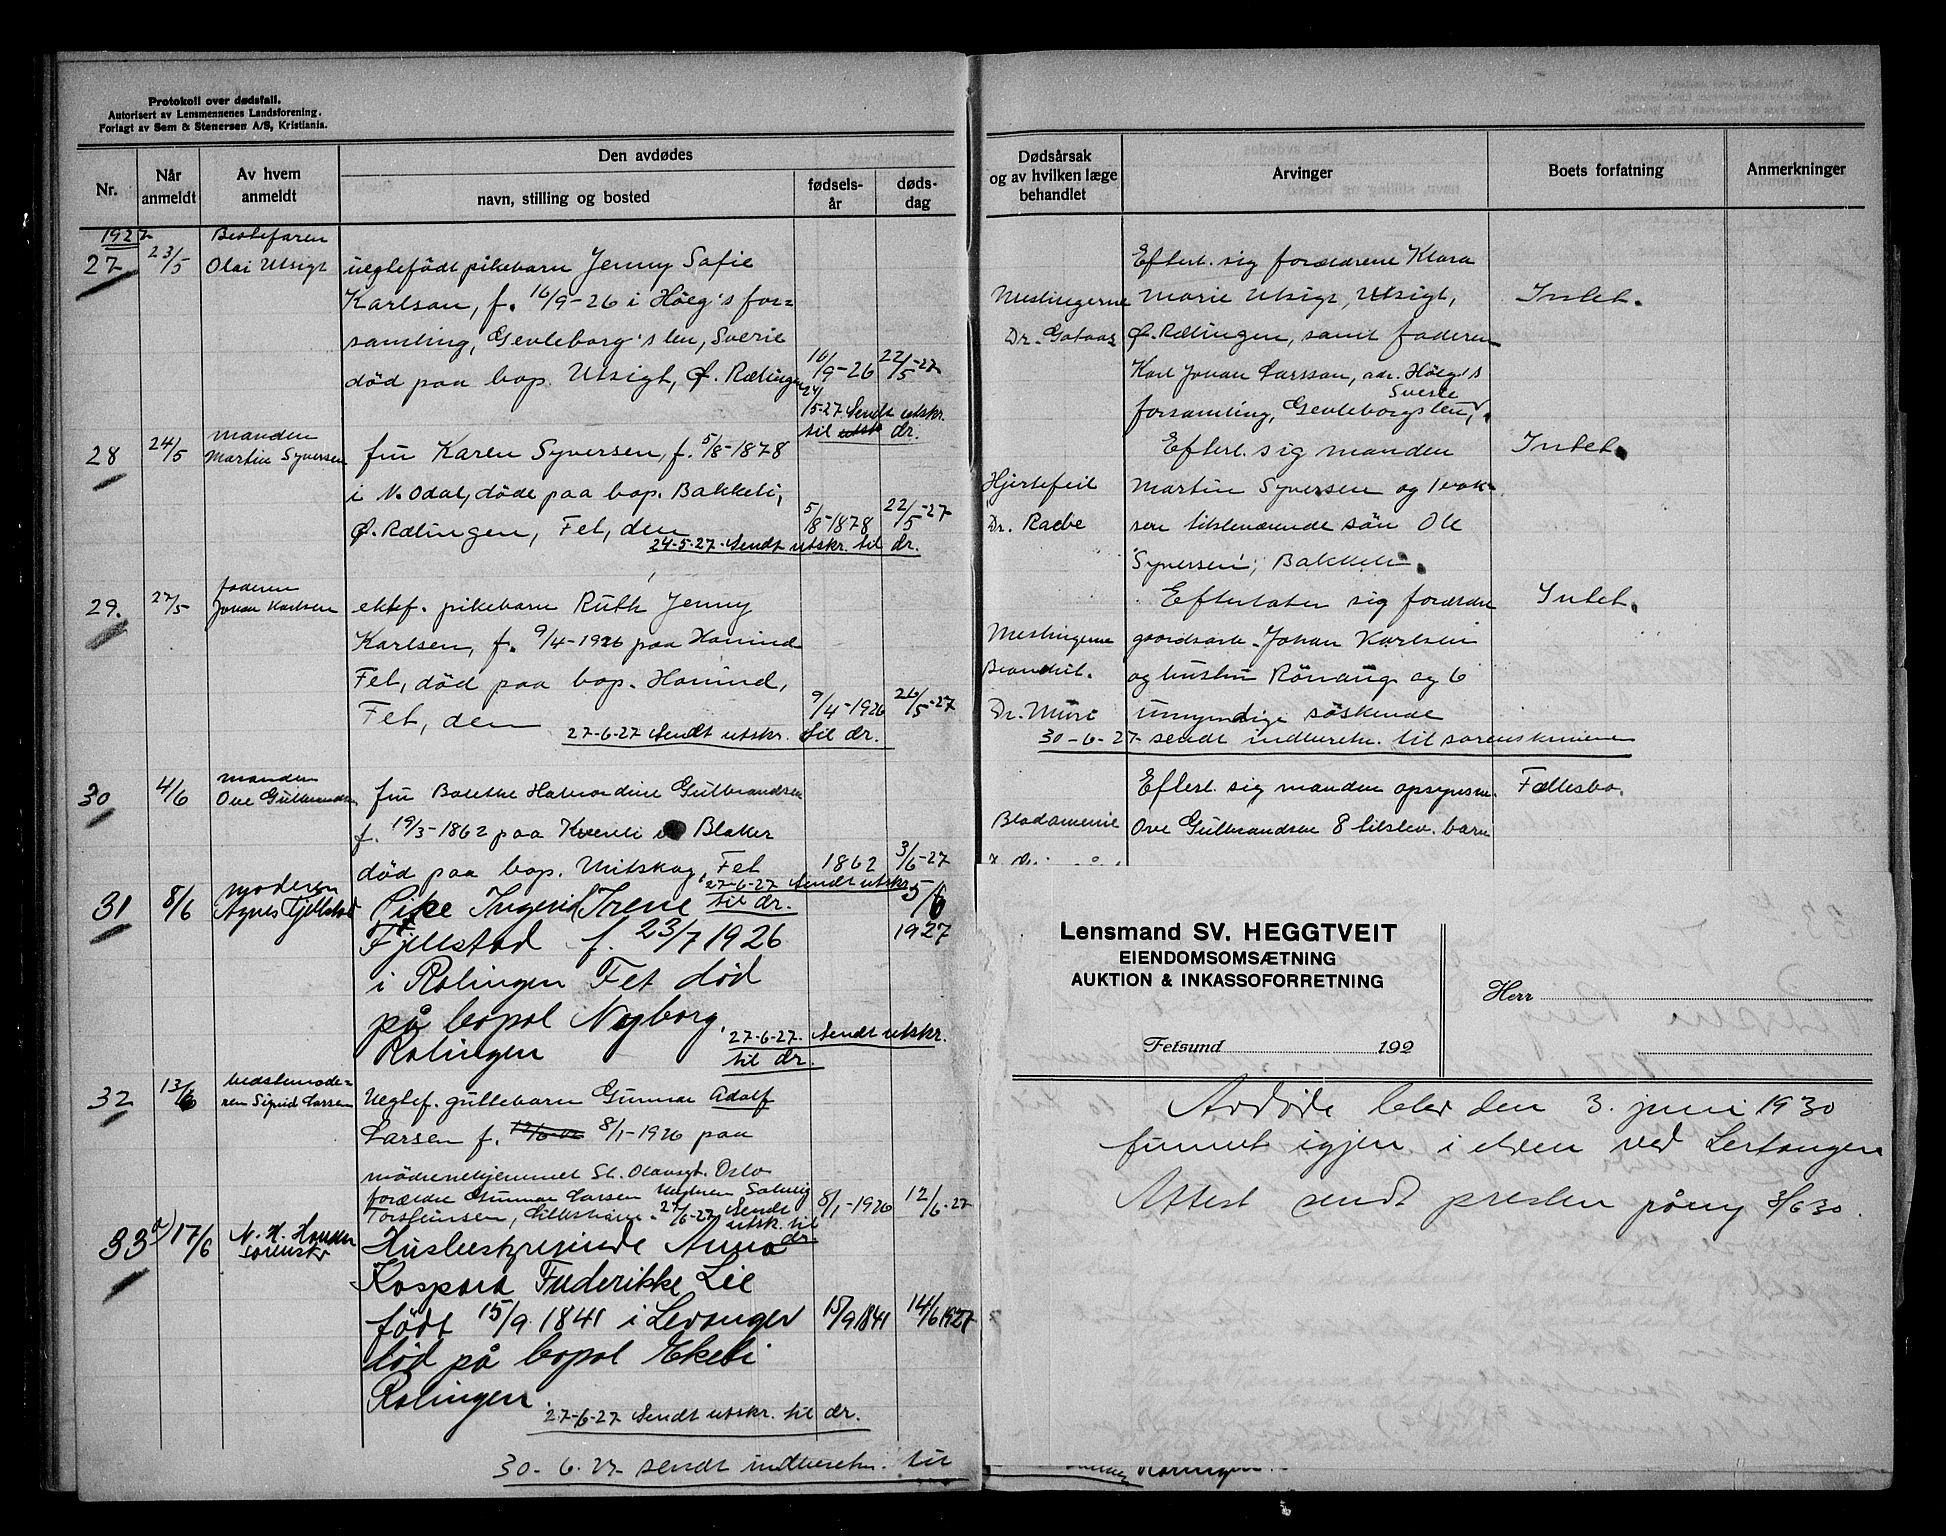 Protokoll over dødsfall.
Autorisert av Lensmennenes Landsforening.
Forlagt av Sem & Stenersen A/S, Kristiania.
Nr.
Når anmeldt
Av hvem anmeldt
Den avdødes
navn, stilling og bosted
fødsels-år
døds-dag
1927
27
23/5
Bestefaren
Olai Utsigt
uegtefødt pikebarn Jenny Sofie
Karlson, f. 16/9-26 i Höeg's for=
samling, Gevleborg's len, Sverie
død paa bop. Utsigt, Ø. Rælingen
16/9-26
22/5-27
24/5-27 Sendt utskr.
til utsk dr.
28
24/5
manden
Martin Syversen
fru Karen Syversen, f. 5/8-1878
i N. Odal, døde paa bop. Bakkeli,
Ø. Rælingen, Fet, den
5/8-1878
22/5-27
24-5-27 Sendt utskr. til dr.
29.
27/5
faderen
Johan Karlsen
ektef. pikebarn Ruth Jenny
Karlsen, f. 9/4-1926 paa
Fet, død paa bop.
Fet, den
9/4-1926
26/5-27
27-6-27 Sendt utskr. til dr.
30
4/6
manden
Ove Gulbrandsen
fru Gulbrandsen
f. 19/3-1862 paa Kvenli i Blaker
død paa bop. Mitskog, Fet
1862
3/6-27
27-6-27 Sendt utskr.
til dr.
31
8/6
moderen
Agnes Fjellstad
Pike Ingerid Irene
Fjellstad f. 23/7 1926
i Rælingen Fet død
på bopel Nyborg,
Rælingen
5/6
1927
27-6-27. Sendt utskr.
til dr.
32
13/6
bedstemode-
ren Sigrid Larsen
Uegtef. guttebarn Gunnar Adolf
Larsen f. 8/1-1926 paa
mödrenehjemmet St. Olavsgt. Oslo
forældre Gunnar Larsen Solveig
8/1-1926
12/6-27
27/6-27 Sendt
utsk. til
dr.
33
17/6
N. H.
Husbestyrerinde Anna
Kaspara Fredrikke Lie
født 15/9 1841 i Levanger
død på bopel Ekeli
Rælingen.
15/9 1841
14/6 1927
27-6-27 Sendt utskr. til dr.
30-6-27 sendt indberetn. til
Dødsårsak
og av hvilken læge
behandlet
Arvinger
Boets forfatning
Anmerkninger
Efterl. sig forældrene Klara
Meslingerne Marie Utsigt, Utsigt,
Intet.
Dr. Gotaas Ø. Rælingen, samt faderen
Karl Johan Larsson, adr. Höeg's
forsamling, Gevleborgs len, Sverie.
Efterl. sig manden
Intet.
Hjertefeil Martin Syversen og 1 vok-
Dr. Raebe sen tilsteværende sön Ole
Syversen, Bakkeli.
Efterlater sig forældre
Intet.
Meslingerne gaardsarb. Johan Karlsen
og hustru Rönaug og 6
Dr. Muri umyndige söskende
30-6-27 sendt indberetn. til sorenskriveren
Efterl. sig manden opsynsm.
Fællesbo.
Blodanemie Ove Gulbrandsen 8 tilstev. barn
Lensmand SV. HEGGTVEIT
EIENDOMSOMSÆTNING
AUKTION & INKASSOFORRETNING
Herr
Fetsund 192
Avdøde blev den 3. juni 1930
funnet igjen i elven ved Lertangen
Attest sendt presten påny 3/6 30.